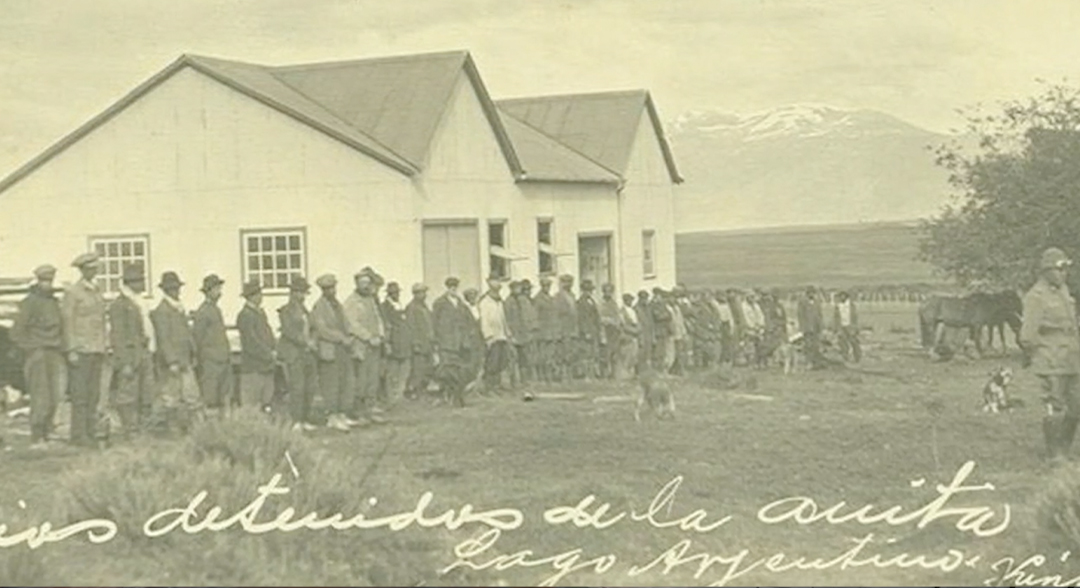 detenidos de la anita
Lago Argentino